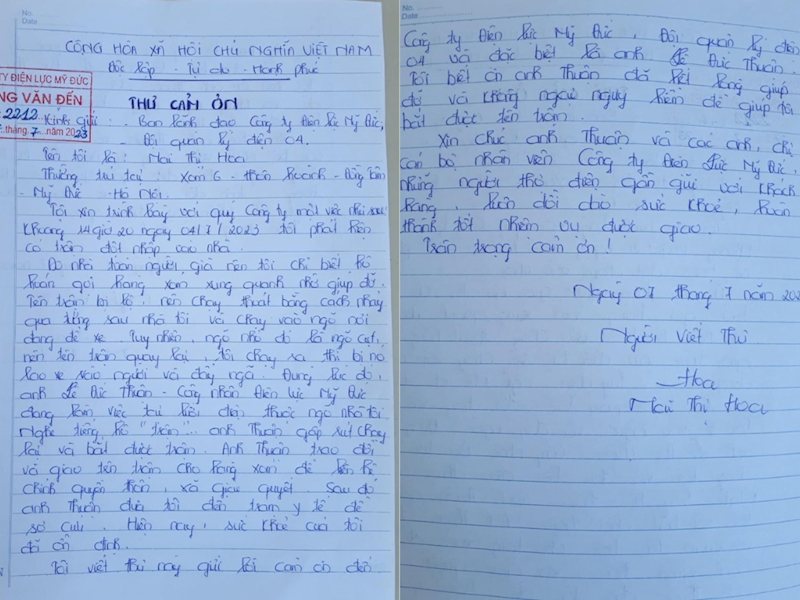 No.
Date
CỘNG HÒA XÃ HỘI CHỦ NGHĨA VIỆT NAM
Độc lập - Tự do - Hạnh phúc
TY ĐIỆN LỰC MỸ ĐỨC
NG VĂN ĐẾN
2212
tháng 7 năm 2023
THƯ CẢM ƠN
Kính gửi: Ban lãnh đạo Công ty Điện lực Mỹ Đức,
Đội quản lý điện 04.
Tên tôi là: Mai Thị Hoa
Thường trú tại: Xóm 6 - thôn - Đồng Tâm
- Mỹ Đức - Hà Nội.
Tôi xin trình bày với quý Công ty một việc như sau
Khoảng 14 giờ 20 ngày 04/7/2023 tôi phát hiện
có trộm đột nhập vào nhà.
Do nhà toàn người già nên tôi chỉ biết hô
hoán gọi hàng xóm xung quanh nhờ giúp đỡ.
Tên trộm bị lộ, nên chạy thoát bằng cách nhảy
qua tường sau nhà tôi và chạy vào ngõ nơi
đang để xe. Tuy nhiên, ngõ nhỏ đó là ngõ cụt,
nên tên trộm quay lại, tôi chạy ra thì bị nó
lao xe vào người và đẩy ngã. Đúng lúc đó,
anh Lê Đức Thuân - Công nhân Điện lực Mỹ Đức
đang làm việc tại cột điện trước ngõ nhà tôi
Nghe tiếng hô "trộm".. anh Thuân gấp rút chạy
lại và bắt được trộm. Anh Thuân trao đổi
và giao tên trộm cho hàng xóm để liên hệ
chính quyền thôn, xã giải quyết. Sau đó
anh Thuân đưa tôi đến trạm y tế để
sơ cứu. Hiện nay, sức khỏe của tôi
đã ổn định.
Tôi viết thư này gửi lời cảm ơn đến
No.
Date
Công ty Điện lực Mỹ Đức, Đội quản lý điện
04 và đặc biệt là anh Lê Đức Thuân.
Tôi biết ơn anh Thuân đã hết lòng giúp
đỡ và không ngại nguy hiểm để giúp tôi
bắt được tên trộm.
Xin chúc anh Thuân và các anh, chị
cán bộ nhân viên Công ty Điện lực Mỹ Đức,
những người thợ điện gần gũi với khách
hàng, luôn dồi dào sức khỏe, hoàn
thành tốt nhiệm vụ được giao.
Trân trọng cảm ơn!
Ngày 07 tháng 7 năm 202
Người viết thư
Hoa
Mai Thị Hoa